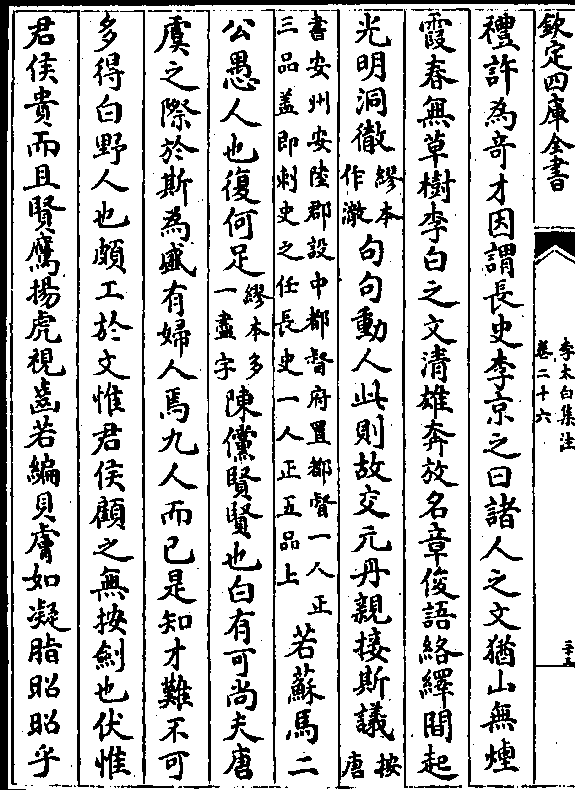 欽定四庫全書
李太白集注
卷二十六
二十五
禮許為奇才因謂長史李京之曰諸人之文猶山無煙
霞春無草樹李白之文清雄奔放名章俊語絡繹間起
光明洞徹繆本作澈句句動人此則故交元丹親接斯議按唐
書安州安陸郡設中都督府置都督一人正三品蓋即刺史之任長史一人正五品上若蘇馬二
公愚人也復何足繆本多一盡字陳儻賢賢也白有可尚夫唐
虞之際於斯為盛有婦人焉九人而已是知才難不可
多得白野人也頗工於文惟君侯顧之無按劍也伏惟
君侯貴而且賢鷹揚虎視齒若編貝膚如凝脂昭昭乎